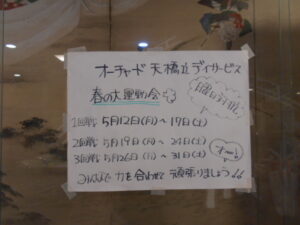 オーチャード 天橋立デイサービス
春の大運動会
日曜日予備
1回戦 5月12日(月)～17日(土)
2回戦 5月19日(月)～24日(土)
3回戦 5月26日(月)～31日(土)
オー!
みんなで 力を合わせて 頑張りましょう!!